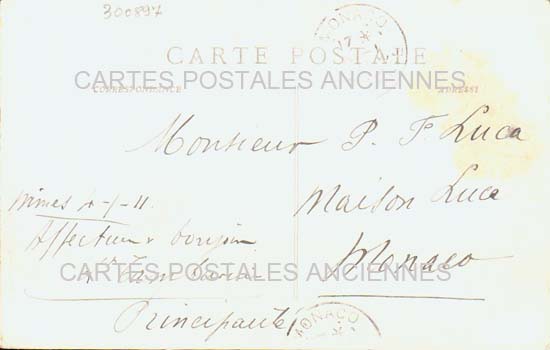 300897
MONACO
17 *
CARTE POSTALE
CARTES POSTALES ANCIENNES
CORRESPONDANCE
ADRESSE
Monsieur P. F. Luca
Maison Luca
Monaco
Nimes
11
CARTES POSTALES ANCIENNES
Principauté
MONACO